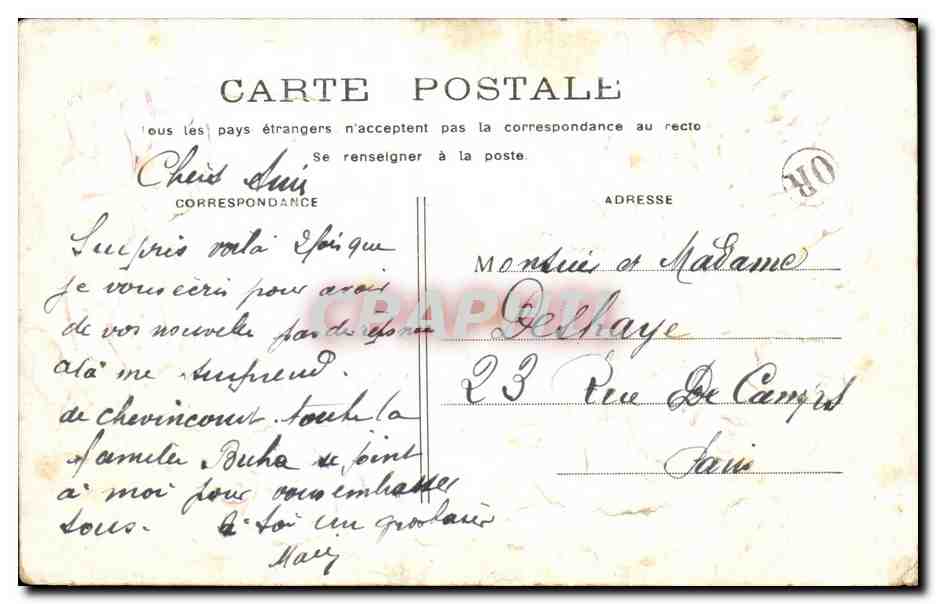 CARTE POSTALE
Tous les pays étrangers n'acceptent pas la correspondance au recto
Se renseigner à la poste.
Chers Amis
CORRESPONDANCE
ADRESSE
OR
Surpris voilà 2 fois que
je vous écris pour avoir
de vos nouvelle pas de réponse
à me surprend.
de Chevincourt toute la
famille Buha se joint
à moi pour vous embrasser
tous. à toi un gros baisir
Marie
Monsuier et Madame
Delhaye
23 Rue De Camps
Paris
CPAPHIL